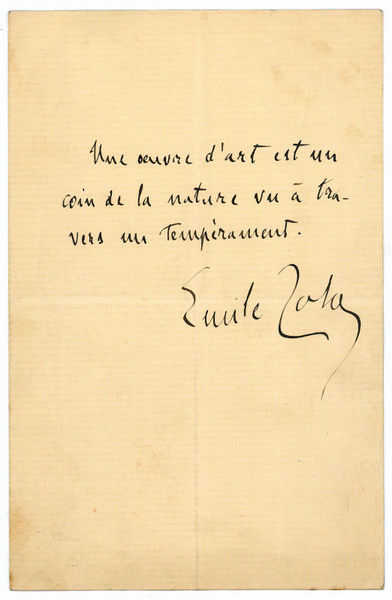 Une œuvre d'art est un
coin de la nature vu à tra-
vers un tempérament.
Emile Zola